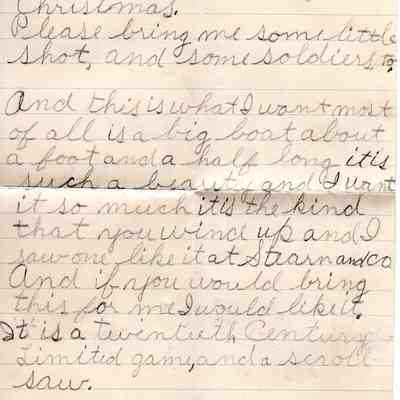 Christmas.
Please bring me some little
shot, and some soldiers to.
And this is what I want most
of all is a big boat about
a foot and a half long it is
such a beauty and I want
it so much it is the kind
that you wind up and I
saw one like it at Stearn and co
And if you would bring
this for me I would like it.
It is a twentieth Century
Limited game, and a scroll
saw.